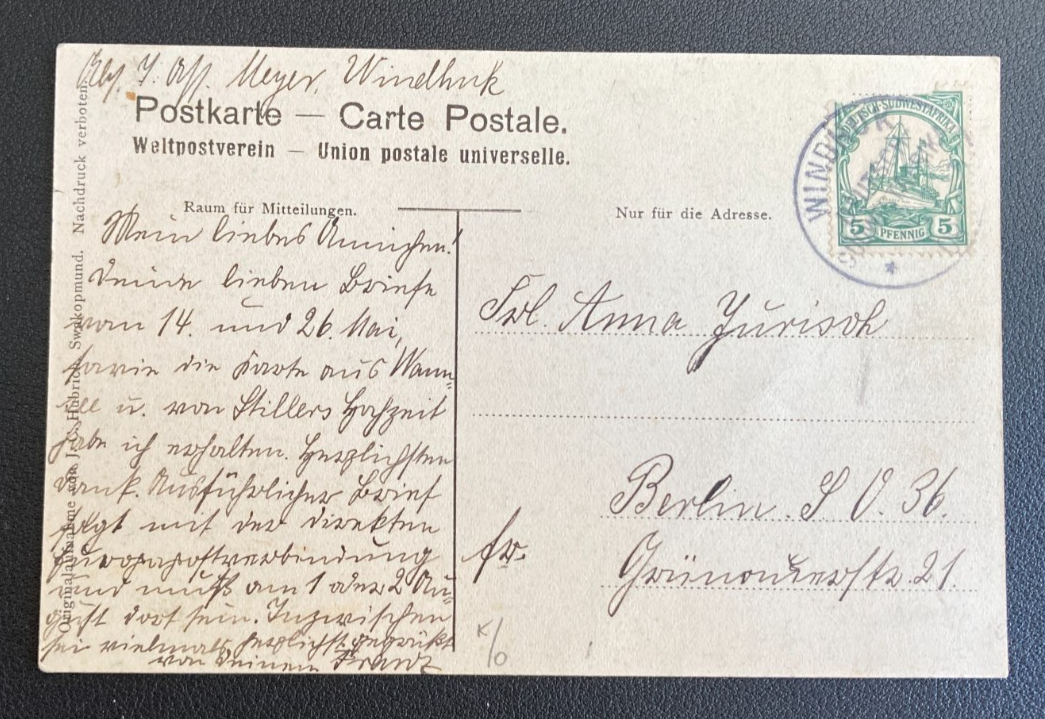 Abs. Meyer, Windhuk
Postkarte — Carte Postale.
Weltpostverein — Union postale universelle.
Raum für Mitteilungen.
Nur für die Adresse.
Originalaufnahme von J. C. Hubrich, Swakopmund. Nachdruck verboten.
WINDHUK
DEUTSCH-SÜDWESTAFRIKA
5 PFENNIG 5
Mein liebes Ännchen!
Deine lieben Briefe
vom 14. und 26. Mai,
sowie die Karte aus Wann-
see u. von Stillers Hochzeit
habe ich erhalten. Herzlichsten
Dank. Ausführlicher Brief
folgt mit der direkten
Europapostverbindung
und muß am 1 oder 2 Au-
gust dort sein. Inzwischen
sei vielmals herzlichst gegrüßt
von Deinem Franz
Frl. Anna Jurisch
Berlin. S O. 36.
fr.
Grünauerstr. 21.
K/0